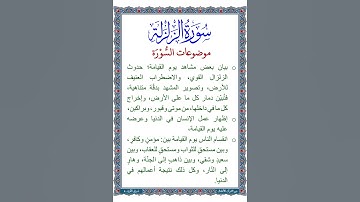 سُورَةُ الزَّلْزَلَةِ
موضوعات السُّورَة
بيان بعض مشاهد يوم القيامة؛ حدوث
الزلزال القوي، والاضطراب العنيف
للأرض، وتصوير المشهد بدقة متناهية،
فتُبيّن دمار كل ما على الأرض، وإخراج
كل ما في داخلها، من موتى وقبور، وبراكين.
إظهار عمل الإنسان في الدنيا وعرضه
عليه يوم القيامة.
انقسام الناس يوم القيامة بين: مؤمن وكافر،
وبين مستحق للثواب ومستحق للعقاب، وبين
سعيد وشقي، وبين ذاهب إلى الجنّة، وهاوٍ
إلى النّار، وكل ذلك نتيجة أعمالهم في
الدنيا.